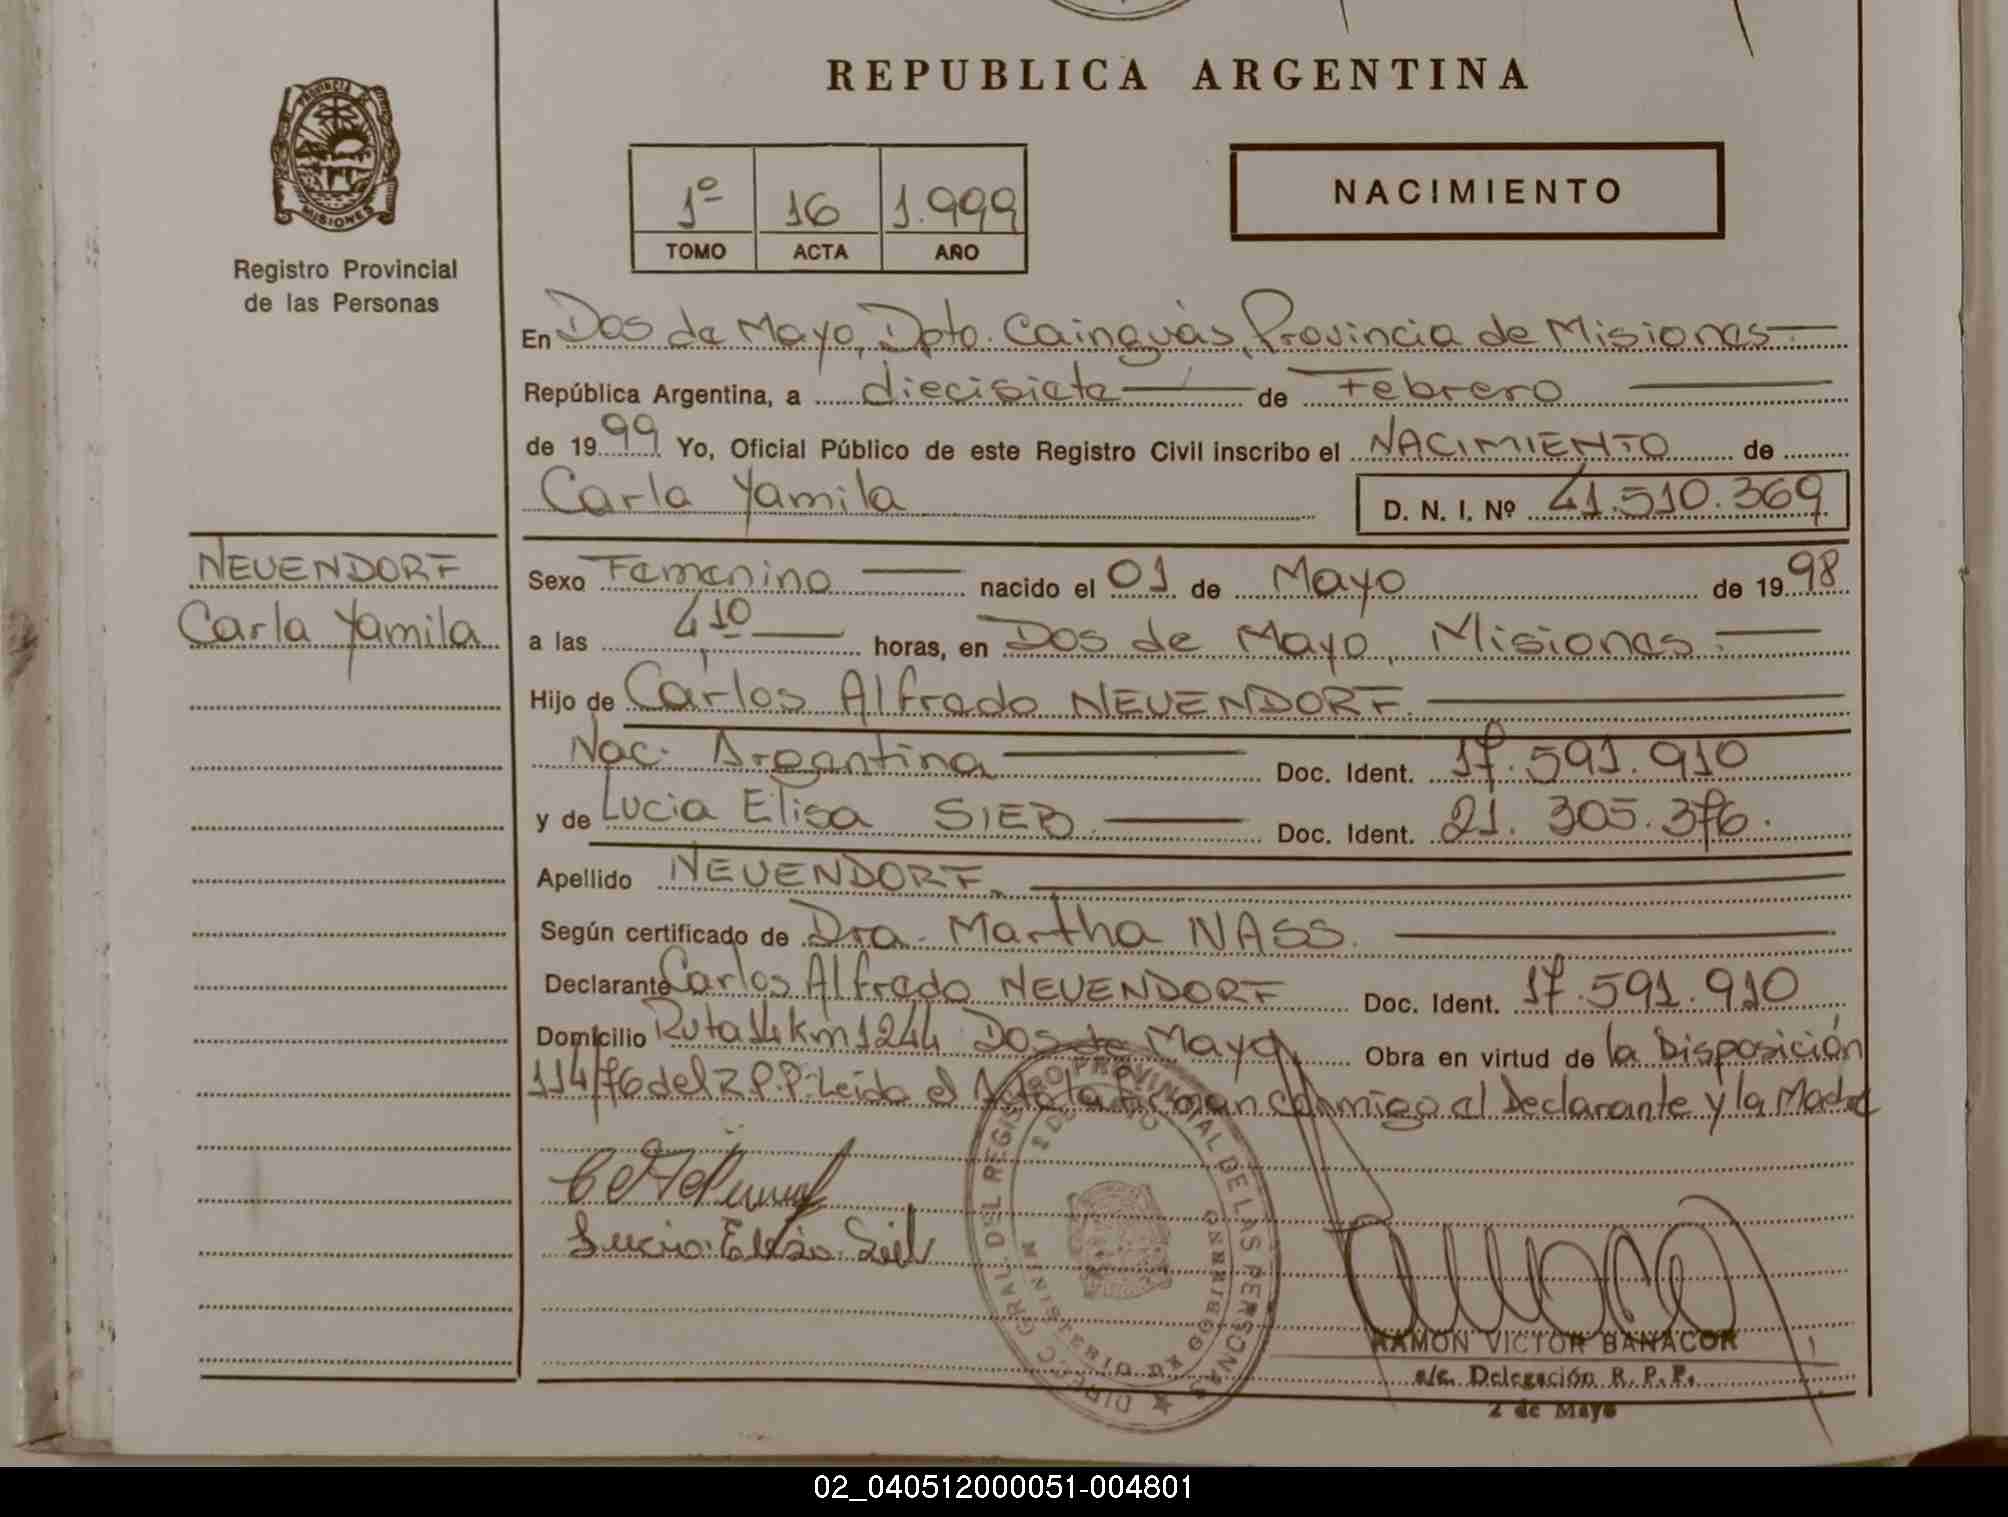 REPUBLICA ARGENTINA
PROVINCIA DE
MISIONES
Registro Provincial
de las Personas
1º 16 1.999
TOMO ACTA AÑO
NACIMIENTO
En Dos de Mayo, Dpto. Cainguás, Provincia de Misiones
República Argentina, a diecisiete de Febrero
de 1999 Yo, Oficial Público de este Registro Civil inscribo el NACIMIENTO de
Carla Yamila D. N. I. Nº 41.510.369
NEUENDORF
Carla Yamila
Sexo Femenino nacido el 01 de Mayo de 1998
a las 4,10 horas, en Dos de Mayo, Misiones.
Hijo de Carlos Alfredo NEUENDORF.
Nac. Argentina Doc. Ident. 17.591.910
y de Lucia Elisa SIEB. Doc. Ident. 21.305.376.
Apellido NEUENDORF.
Según certificado de Dra. Martha NASS.
Declarante Carlos Alfredo NEUENDORF Doc. Ident. 17.591.910
Domicilio Ruta 14 km 1244 Dos de Mayo Obra en virtud de la Disposición
114/76 del R.P.P. Leida el Acta la firman conmigo el Declarante y la Madre
Lucia Elisa Sieb
DIREC. GRAL. DEL REGISTRO PROVINCIAL DE LAS PERSONAS
RAMON VICTOR BANACOR
a/c. Delegación R. P. P.
2 de Mayo
02_040512000051-004801